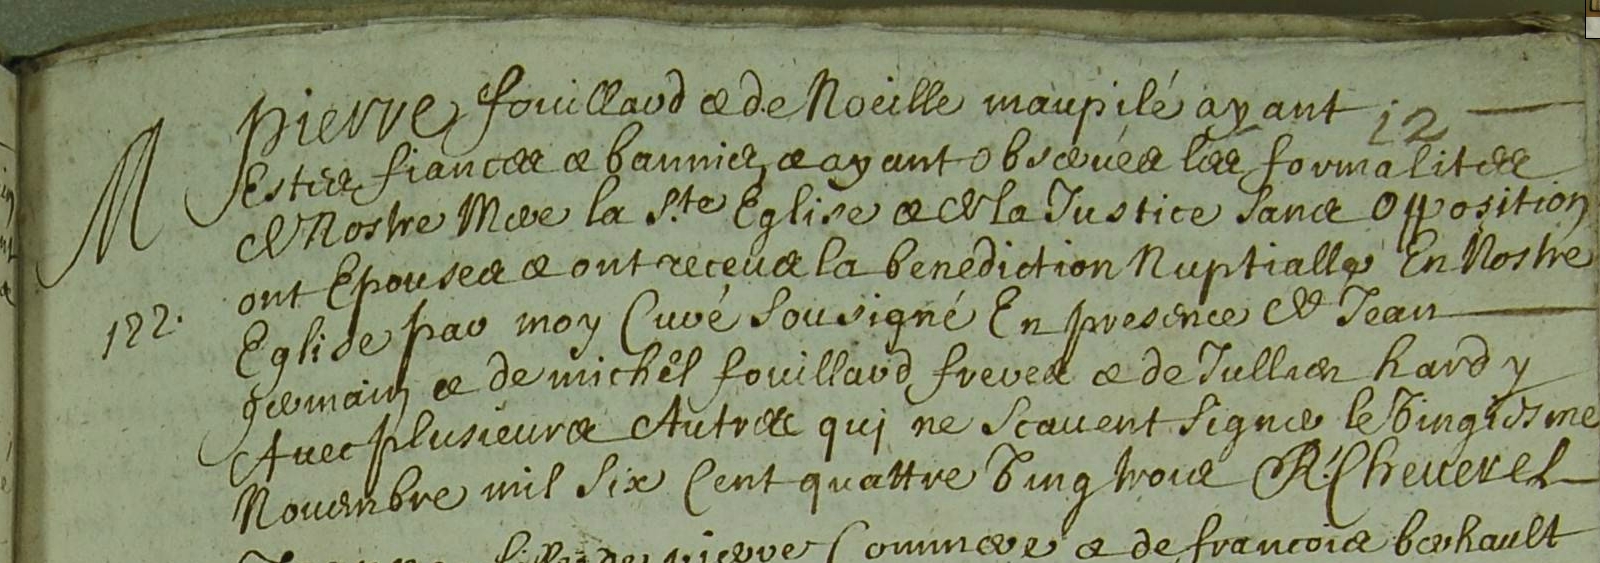 pierre fouillard & de Noëlle maupilé ayant
12
M
Estée fiancés & bannies, & ayant Observés les formalités
de Nostre Mere la Ste Eglise & de la Justice Sans Opposition
ont Epousés & ont receus la benediction Nuptialle En Nostre
122.
Eglise par moy Curé Sousigné En presence de Jean
germain & de michel fouillard freres & de Jullien hardy
Avec plusieurs Autres qui ne scavent Signer le vingiesme
Novembre mil Six Cent quattre ving trois R. Cheverel
pierre Commere & de francois